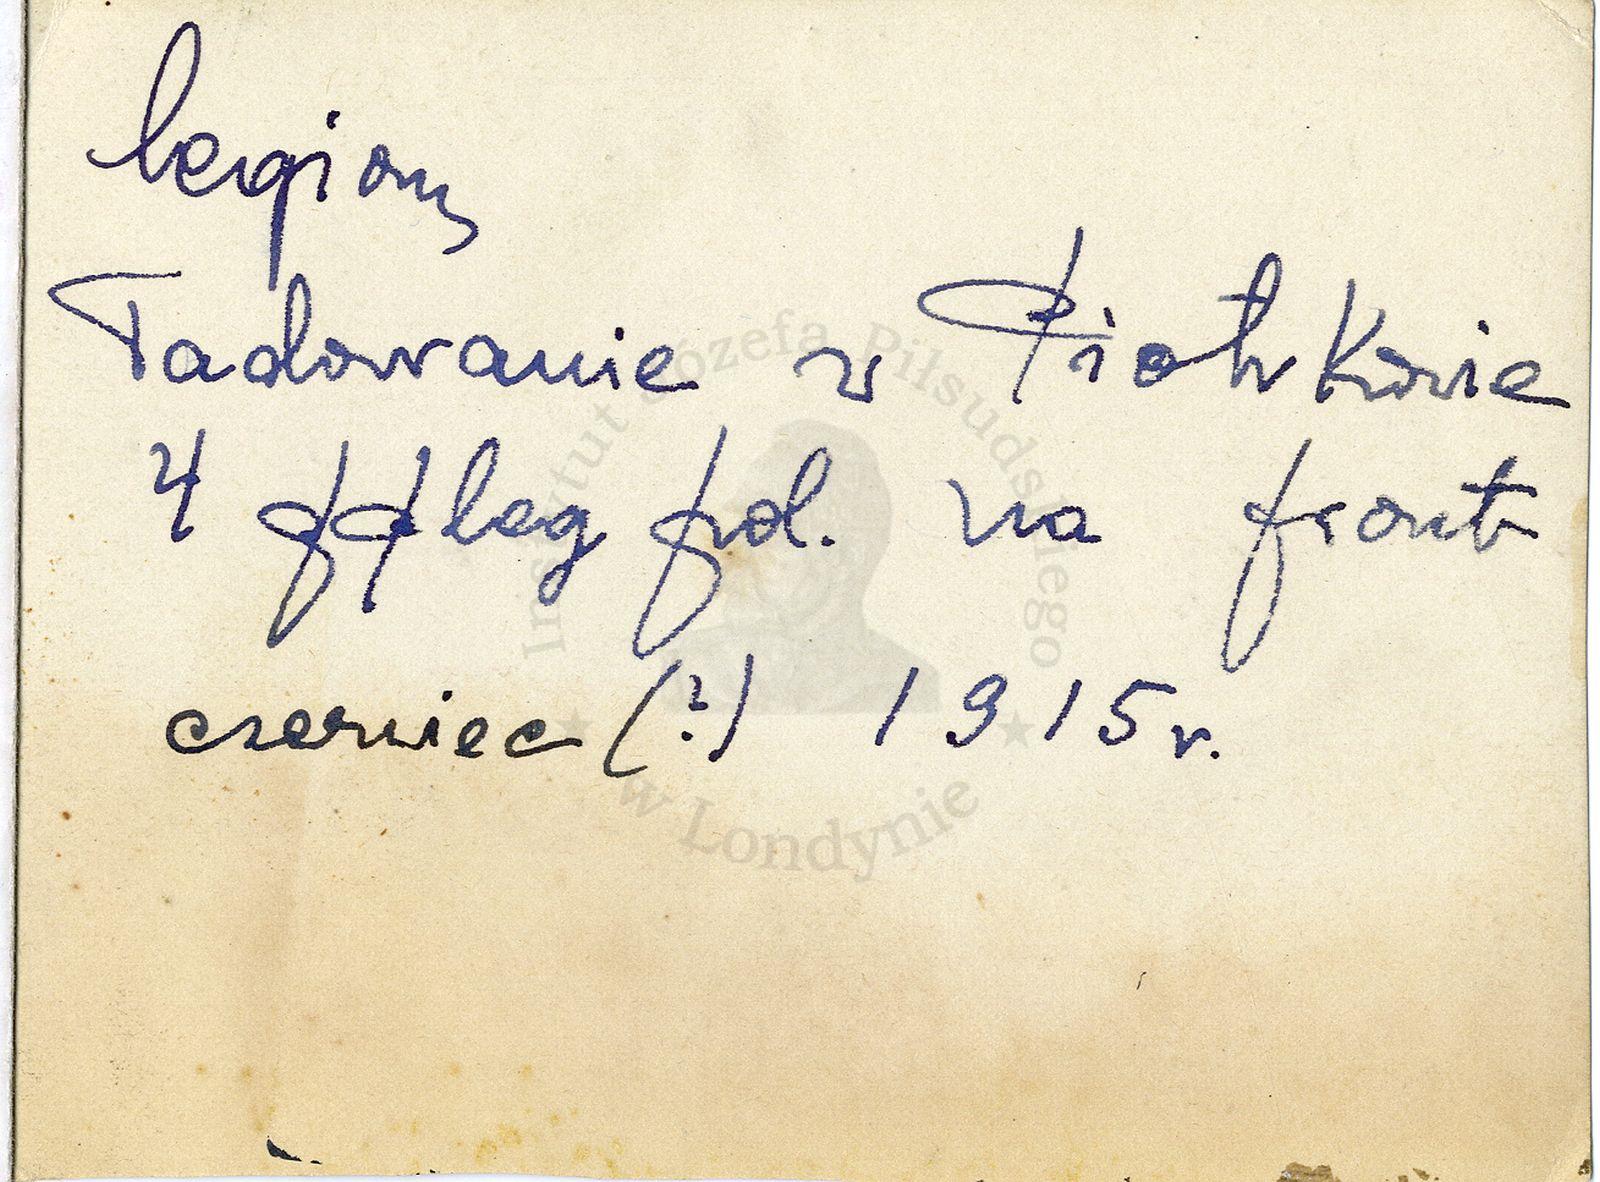 Legiony
Ładowanie w Piotrkowie
4 pp leg pol. na front
czerwiec (?) 1915 r.
Instytut Józefa Piłsudskiego
w Londynie